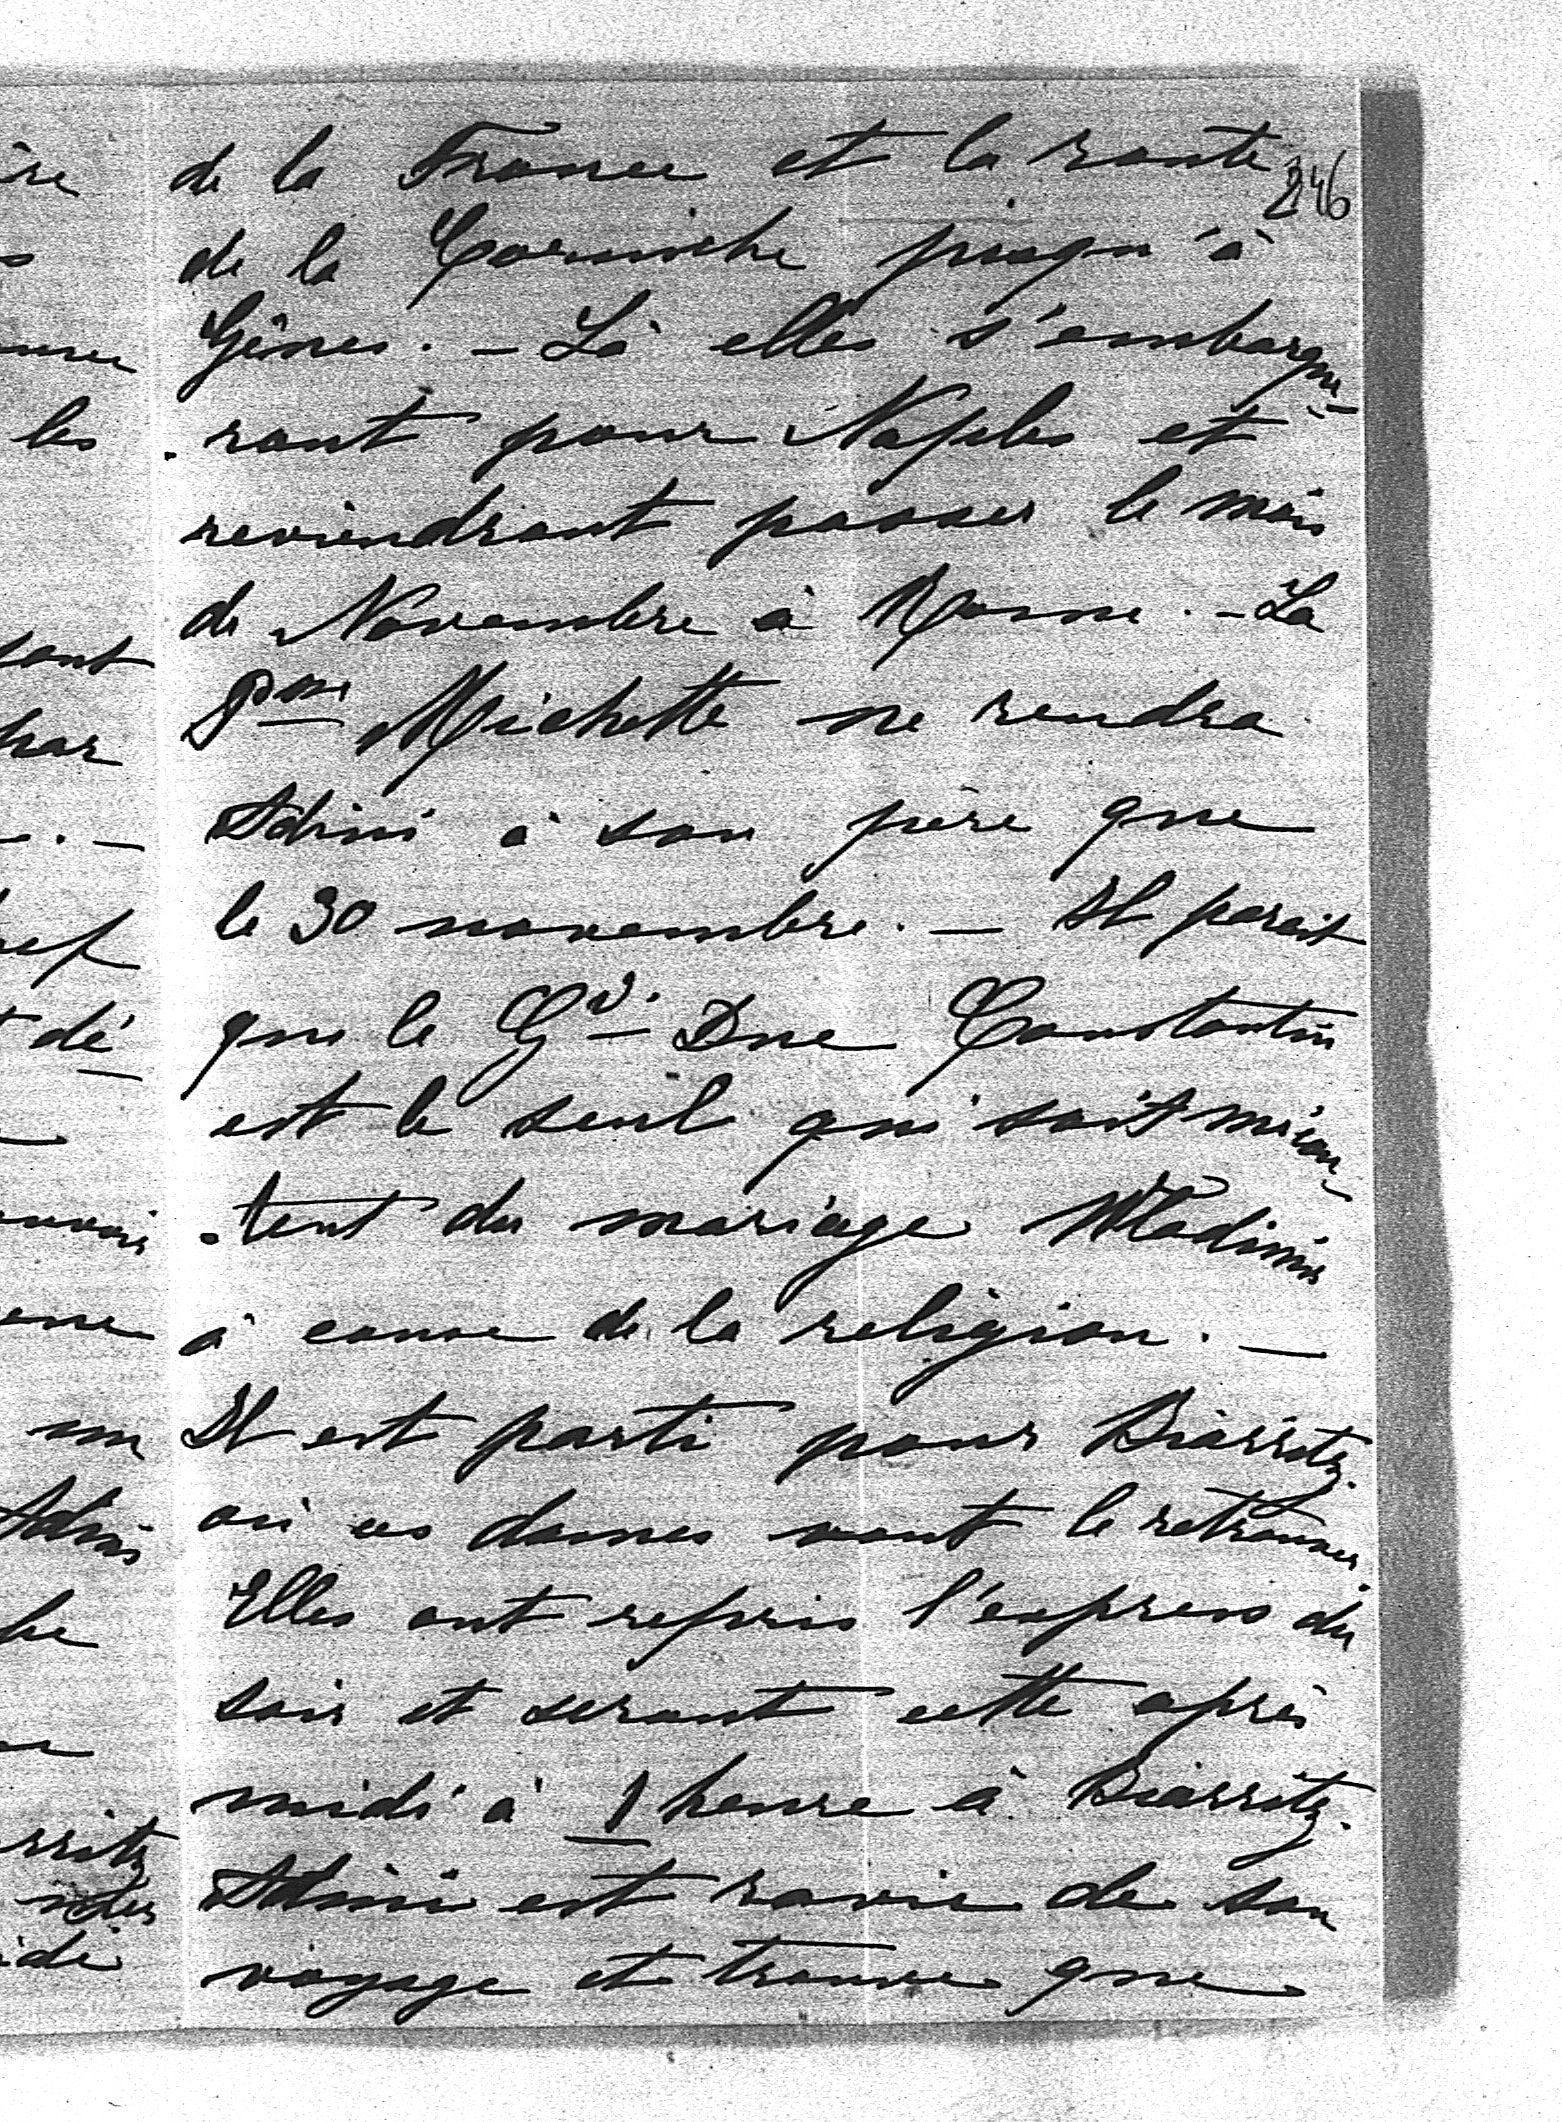 de la France et la route
246
de la Corniche jusqu'à
Gênes. — Là elles s'embarque-
ront pour Naples et
reviendront passer le mois
de Novembre à Rome. — La
Pcesse Michette ne rendra
Adini à son père que
le 30 novembre. — Il parait
que le Gd. Duc Constantin
est le seul qui soit mécon-
tent du mariage Wladimir
à cause de la religion. —
Il est parti pour Biarritz.
où ces dames vont le retrouver.
Elles ont repris l'express du
soir et seront cette après
midi à 1 heure à Biarritz.
Adini est ravie de son
voyage et trouve que